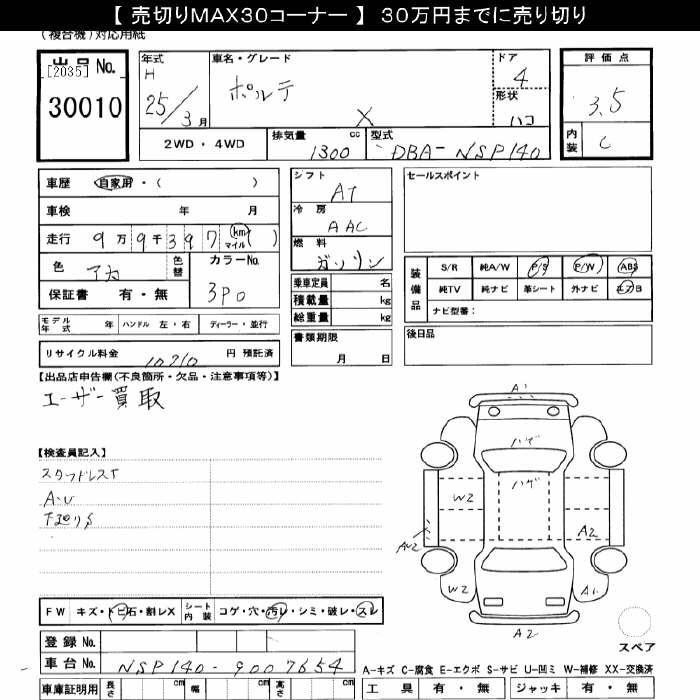 【 売切りMAX30コーナー 】 30万円までに売り切り
(複合機)対応用紙
出品 No.
[2035]
30010
年式
H
25/3月
車名・グレード
ポルテ
X
ドア
4
形状
ハコ
評価点
3.5
内装
C
2WD・4WD
排気量
1300
cc
型式
DBA-NSP140
車歴 自家用・( )
車検 年 月
走行 9万9千397 km マイル ( )
色 アカ
色替
カラーNo.
3P0
保証書 有・無
シフト
AT
冷房
AAC
燃料
ガソリン
乗車定員 名
積載量 kg
総重量 kg
セールスポイント
装備品
S/R 純A/W P/S P/W ABS
純TV 純ナビ 革シート 外ナビ エアB
ナビ型番:
モデル年式 年 ハンドル 左・右 ディーラー・並行
リサイクル料金 10710 円 預託済
書類期限
月 日
後日品
【出品店申告欄(不良箇所・欠品・注意事項等)】
ユーザー買取
【検査員記入】
スタッドレスT
A・U
下回りS
A1
ハゲ
ハゲ
W2
A2
W2
A1
A2
FW キズ・トビ石・割レX シート内装 コゲ・穴・汚レ・シミ・破レ・スレ
登録 No.
車台 No. NSP140-9007654
車庫証明用 長さ cm 幅 cm 高さ cm
スペア
A-キズ C-腐食 E-エクボ S-サビ U-凹ミ W-補修 XX-交換済
工具 有・無 ジャッキ 有・無